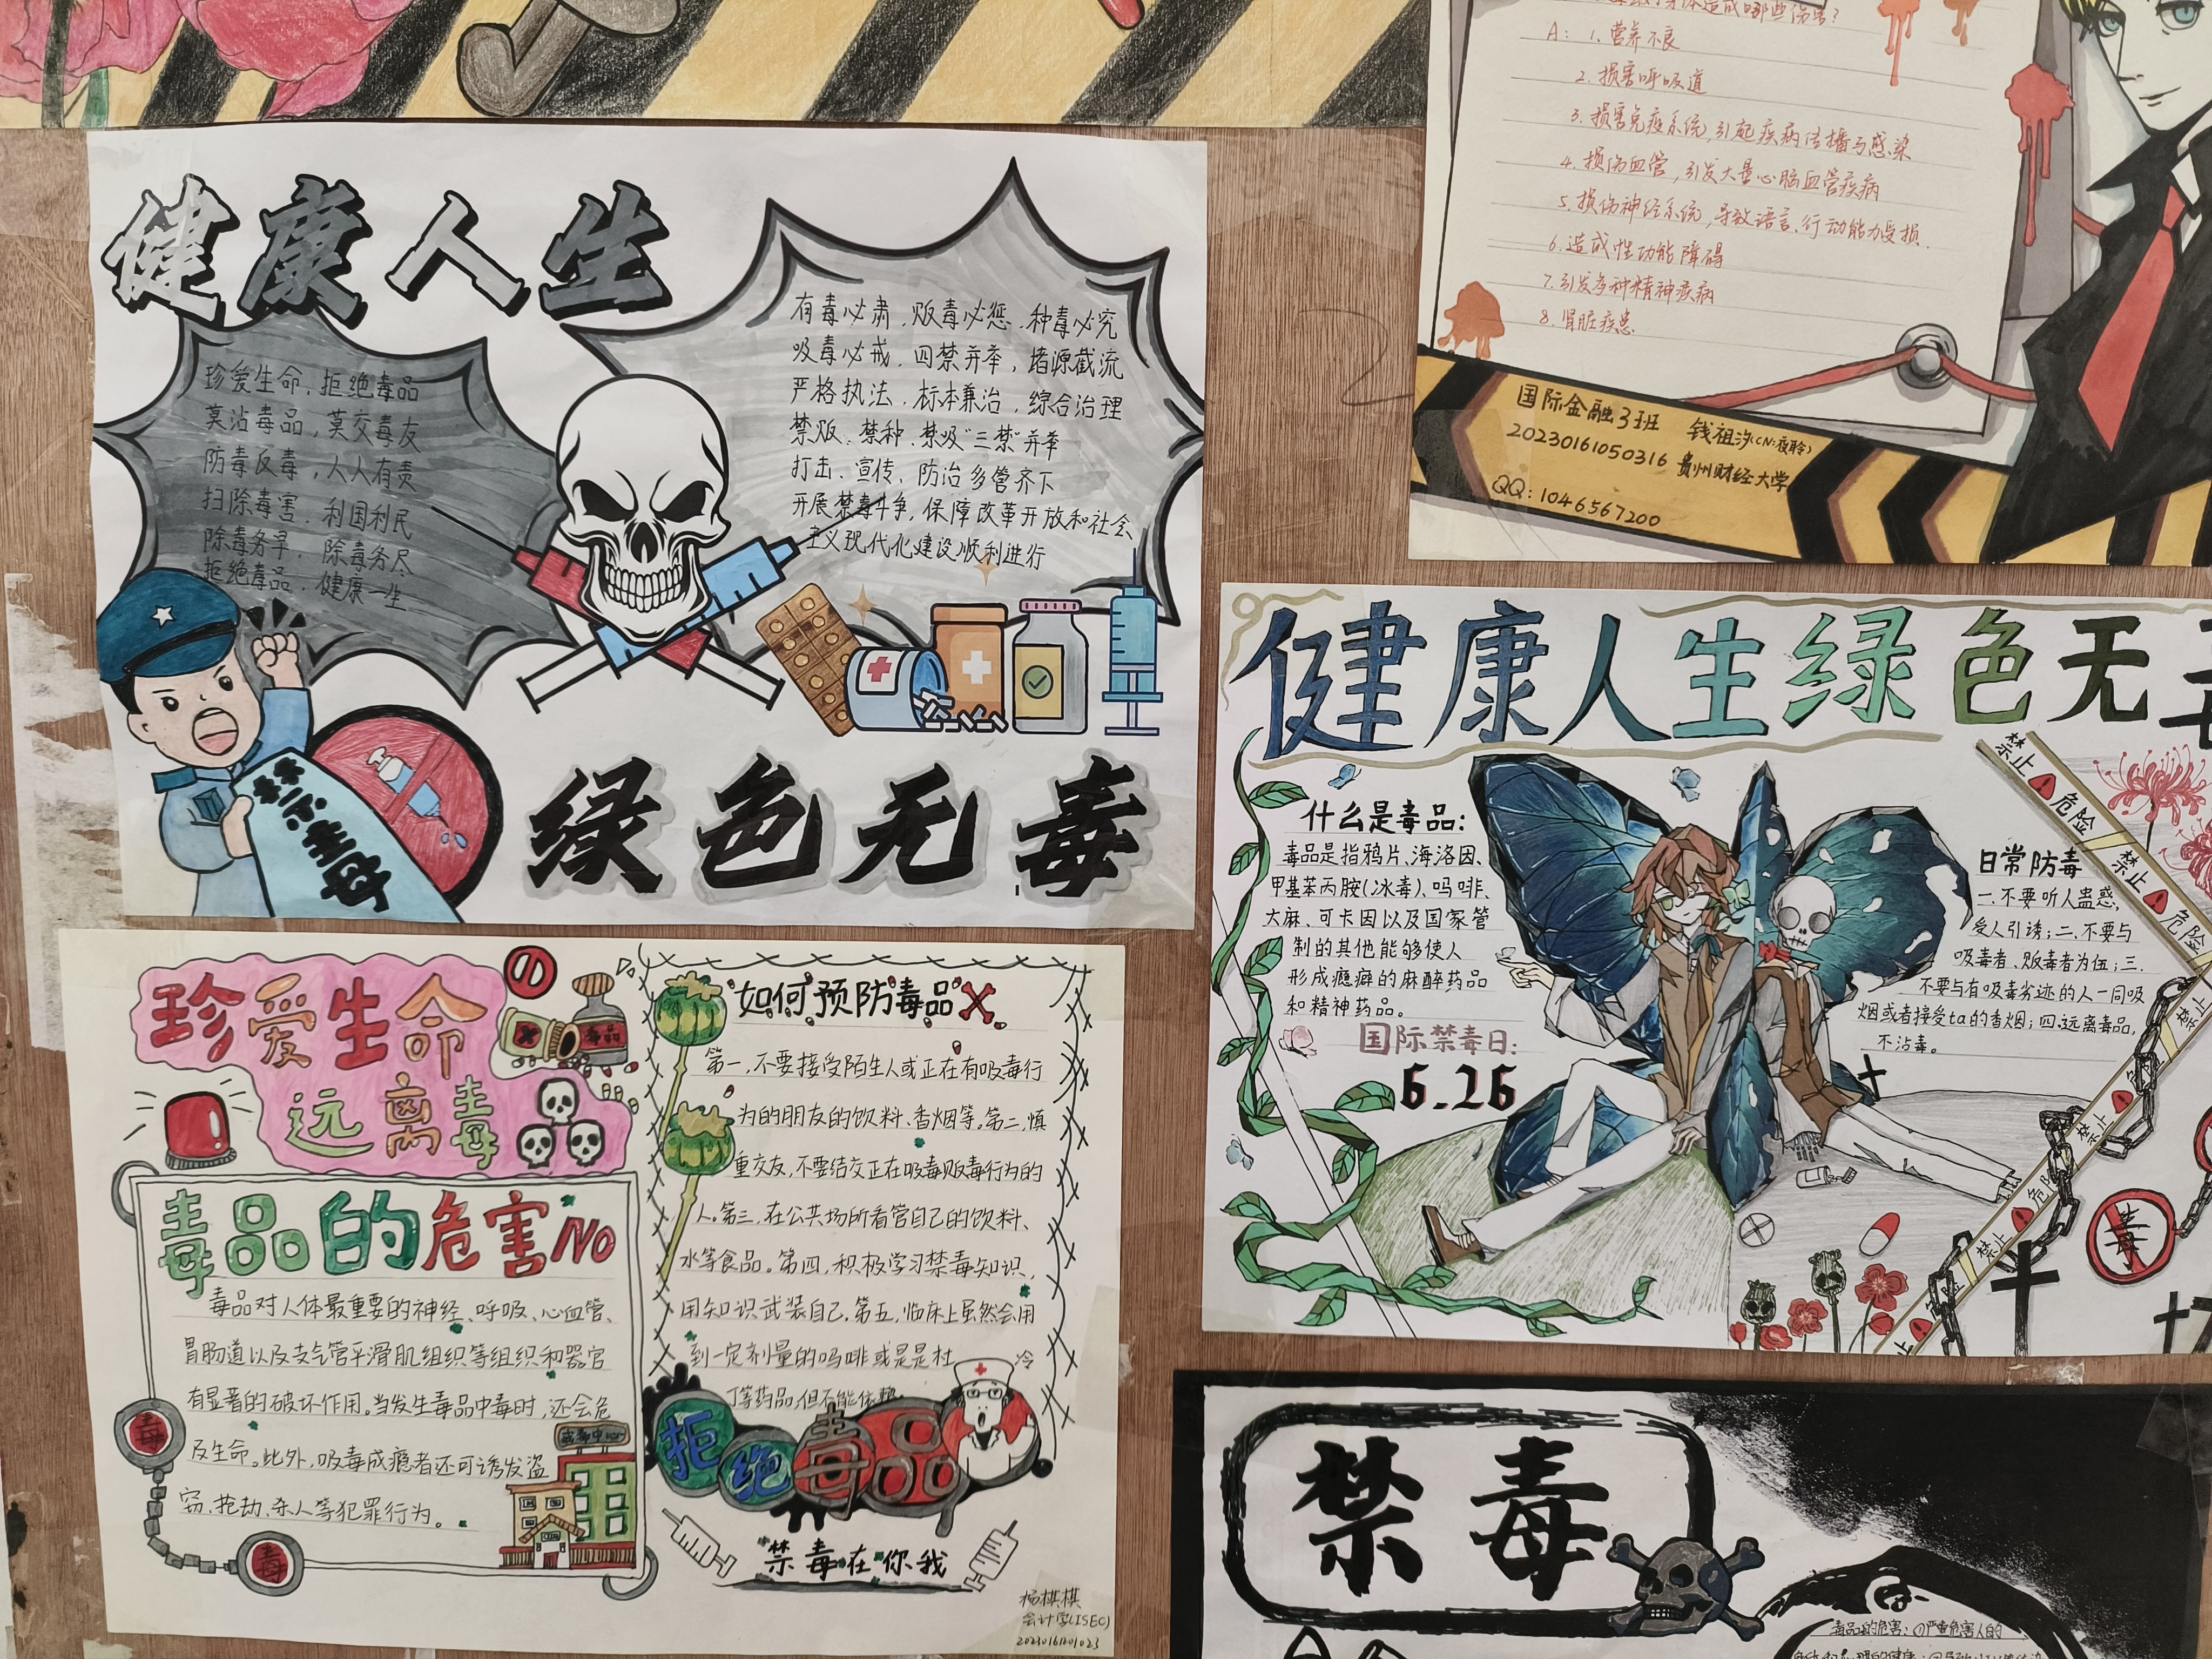 健康人生
珍爱生命，拒绝毒品
莫沾毒品，莫交毒友
防毒反毒，人人有责
扫除毒害，利国利民
除毒务早，除毒务尽
拒绝毒品，健康一生
有毒必肃，贩毒必惩，种毒必究
吸毒必戒，四禁并举，堵源截流
严格执法，标本兼治，综合治理
禁贩、禁种、禁吸"三禁"并举
打击、宣传、防治多管齐下
开展禁毒斗争，保障改革开放和社会
主义现代化建设顺利进行
禁毒
绿色无毒
A：1.营养不良
2.损害呼吸道
3.损害免疫系统，引起疾病传播与感染
4.损伤血管，引发大量心脑血管疾病
5.损伤神经系统，导致语言、行动能力受损.
6.造成性功能障碍
7.引发多种精神疾病
8.肾脏疾患
国际金融3班 钱祖汐(CN:夜聆)
20230161050316 贵州财经大学
QQ：1046567200
健康人生绿色无
什么是毒品：
毒品是指鸦片、海洛因、
甲基苯丙胺(冰毒)、吗啡、
大麻、可卡因以及国家管
制的其他能够使人
形成瘾癖的麻醉药品
和精神药品。
国际禁毒日：
6.26
日常防毒
一.不要听人蛊惑，
受人引诱；二.不要与
吸毒者、贩毒者为伍；三.
不要与有吸毒劣迹的人一同吸
烟或者接受ta的香烟；四.远离毒品，
不沾毒。
禁止 危险 禁止 危险
禁止
禁止 危险
禁止
危险
毒
珍爱生命
远离毒
毒品
毒品的危害NO
毒品对人体最重要的神经、呼吸、心血管、
胃肠道以及支气管平滑肌组织等组织和器官
有显著的破坏作用。当发生毒品中毒时，还会危
及生命。此外，吸毒成瘾者还可诱发盗
窃、抢劫、杀人等犯罪行为。
戒毒中心
毒
毒
如何预防毒品
第一，不要接受陌生人或正在有吸毒行
为的朋友的饮料、香烟等。第二，慎
重交友，不要结交正在吸毒贩毒行为的
人。第三，在公共场所看管自己的饮料、
水等食品。第四，积极学习禁毒知识，
用知识武装自己。第五，临床上虽然会用
到一定剂量的吗啡或是是杜冷
丁等药品，但不能依赖
拒绝毒品
禁毒在你我
杨棋棋
会计学(ISEC)
禁毒
毒品的危害：①严重危害人的